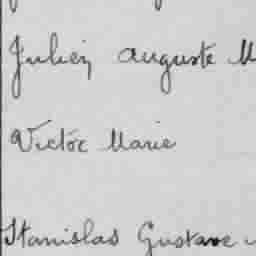 Julien Auguste M
Victor Marie
Stanislas Gustave